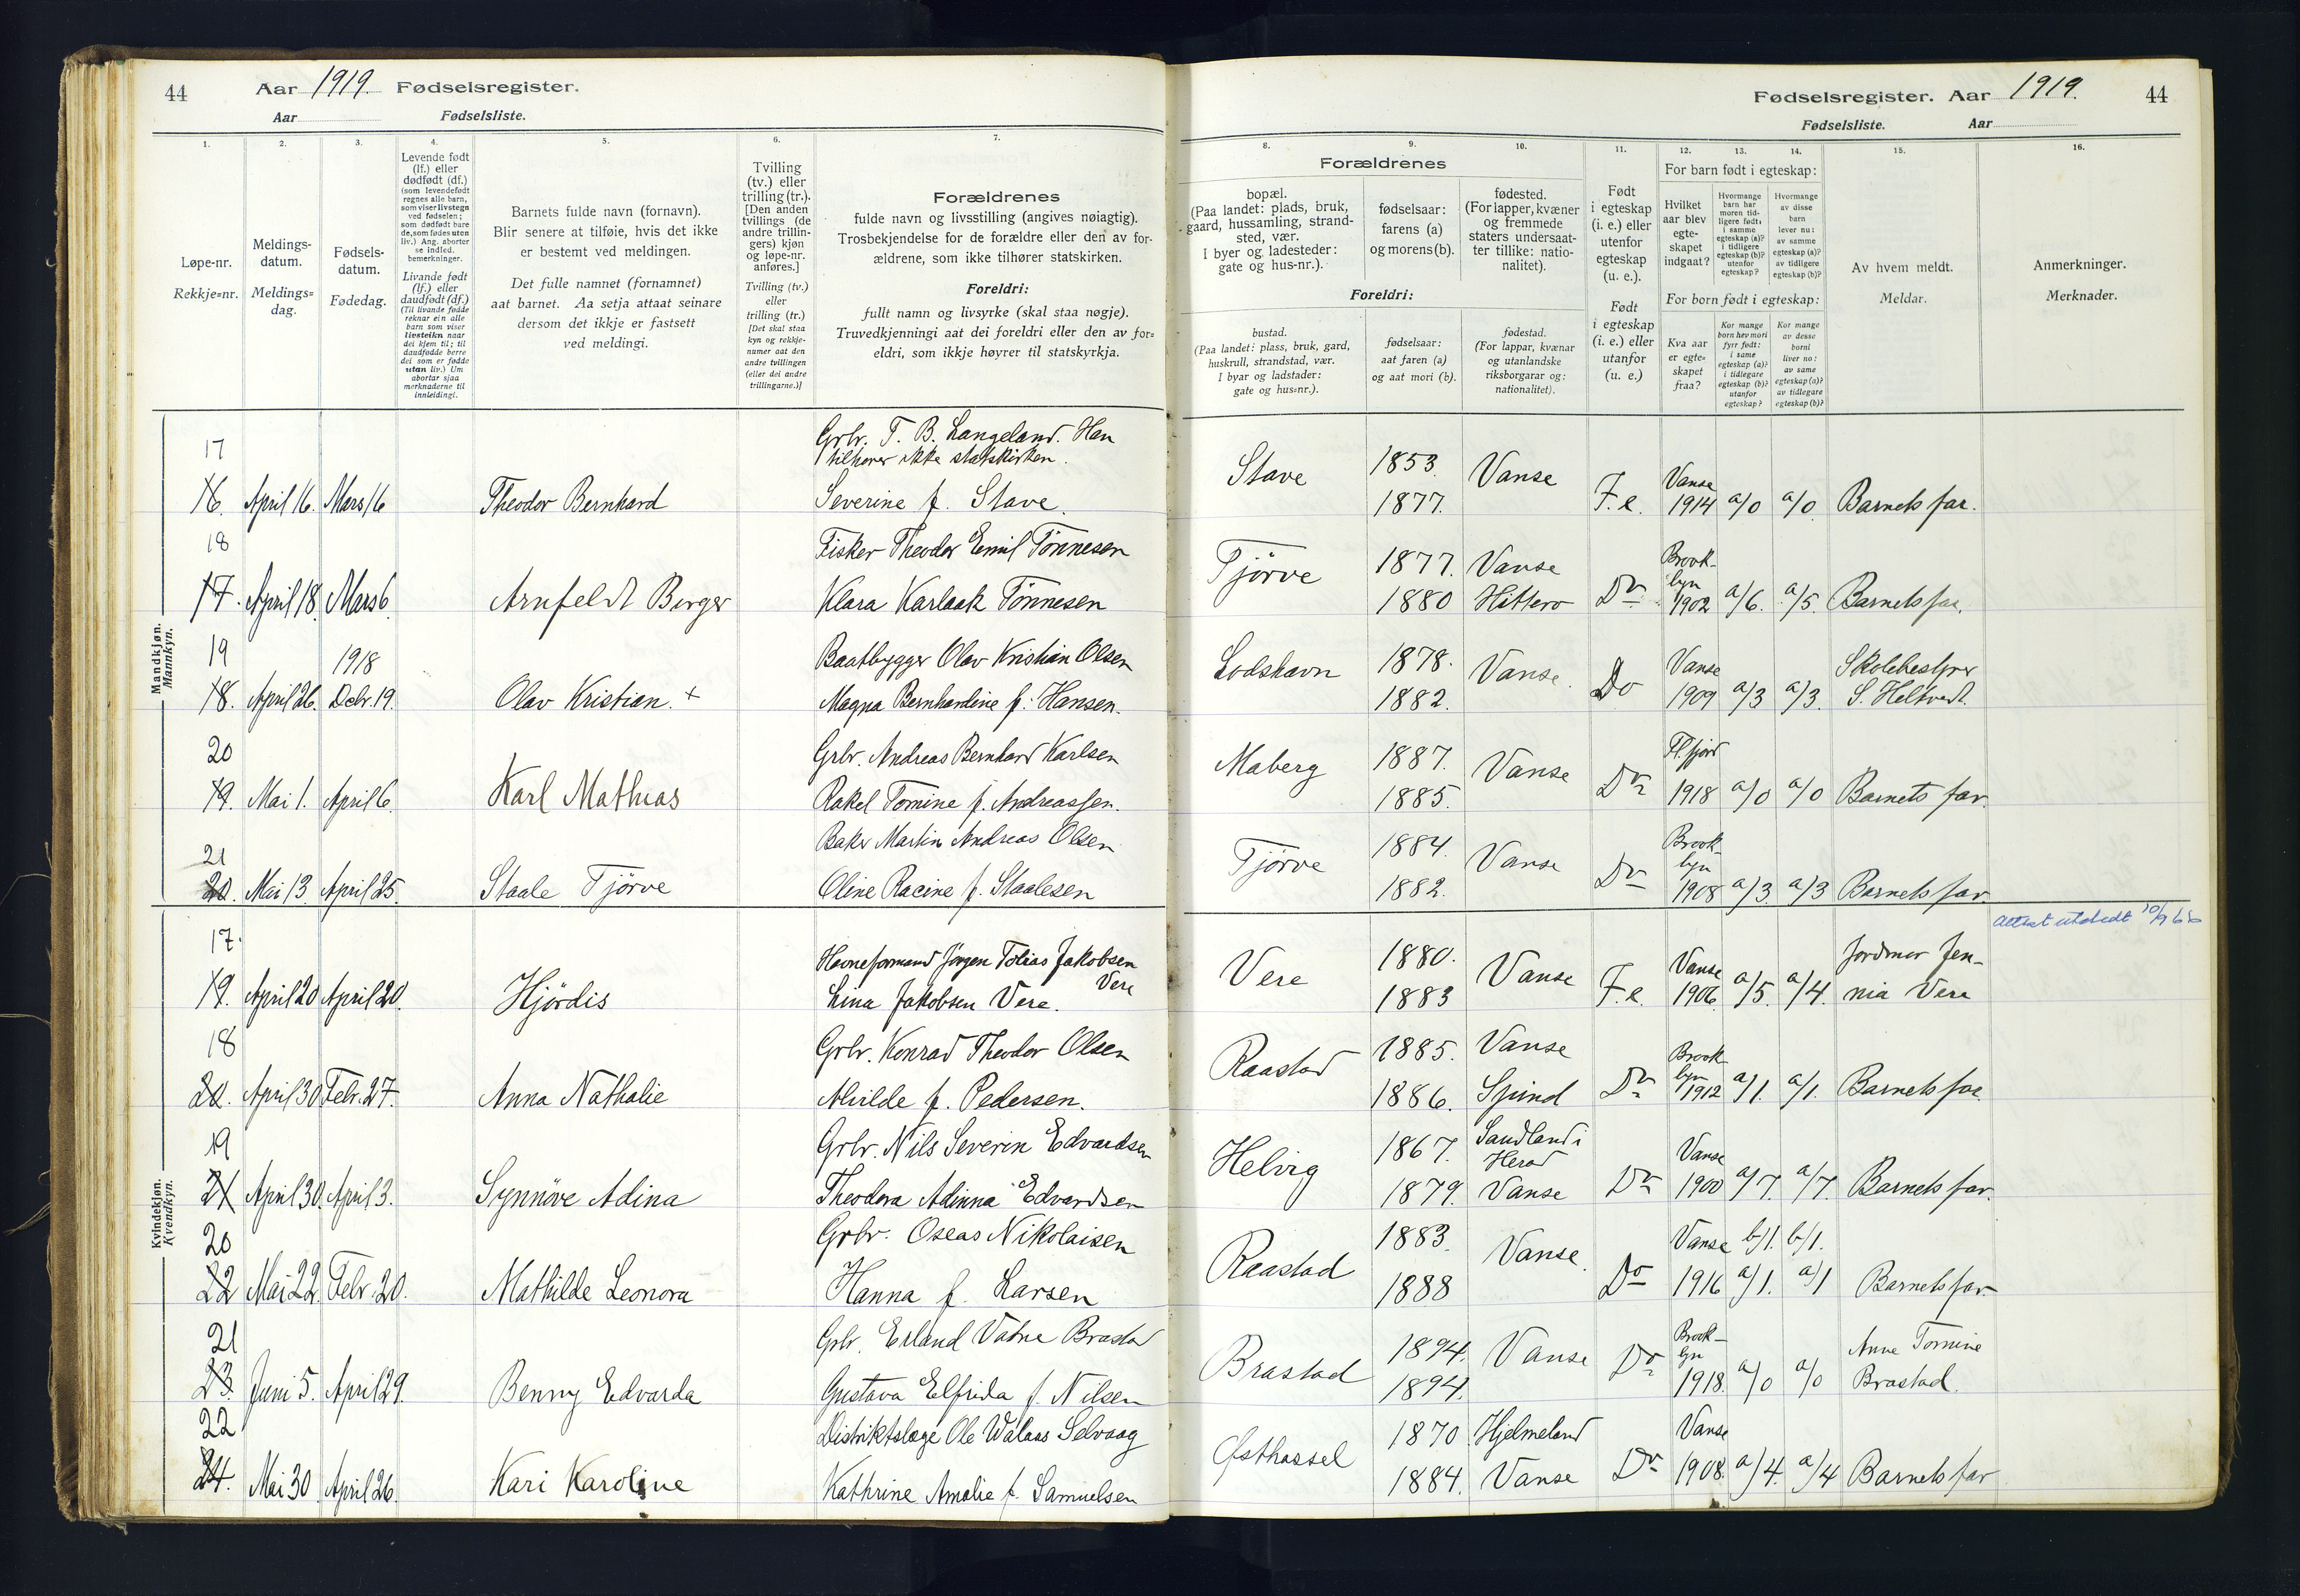 44 Aar 1919. Fødselsregister.
Aar Fødselsliste.
1. 2. 3. 4. 5. 6. 7.
Løpe-nr.
Rekkje=nr.
Meldings-
datum.
Meldings=
dag.
Fødsels-
datum.
Fødedag.
Levende født
(lf.) eller
dødfødt (df.)
(som levendefødt
regnes alle barn,
som viser livstegn
ved fødselen;
som dødfødt bare
de, som fødes uten
liv.) Ang. aborter
se indled.
bemerkninger.
Livande født
(lf.) eller
daudfødt (df.)
(Til livande fødde
reknar ein alle
barn som viser
livsteikn naar
dei kjem til; til
daudfødde berre
dei som er fødde
utan liv.) Um
abortar sjaa
merknaderne til
innleidingi.
Barnets fulde navn (fornavn).
Blir senere at tilføie, hvis det ikke
er bestemt ved meldingen.
Det fulle namnet (fornamnet)
aat barnet. Aa setja attaat seinare
dersom det ikkje er fastsett
ved meldingi.
Tvilling
(tv.) eller
trilling (tr.).
[Den anden
tvillings (de
andre trillin-
gers) kjøn
og løpe-nr.
anføres.]
Tvilling (tv.)
eller
trilling (tr.)
[Det skal staa
kyn og rekkje-
numer aat den
andre tvillingen
(eller dei andre
trillingarne.)]
Forældrenes
fulde navn og livsstilling (angives nøiagtig).
Trosbekjendelse for de forældre eller den av for-
ældrene, som ikke tilhører statskirken.
Foreldri:
fullt namn og livsyrke (skal staa nøgje).
Truvedkjenningi aat dei foreldri eller den av for=
eldri, som ikkje høyrer til statskyrkja.
Mandkjøn.
Mannkyn.
17 Grbr. T. B. Langeland. Han
tilhører ikke statskirken.
16. April 16. Mars 16 Theodor Bernhard Severine f. Stave.
18 Fisker Theodor Emil Tönnesen
17. April 18. Mars 6 Arnfeldt Birger Klara Karlaak Tönnesen
19 1918 Baatbygger Olav Kristian Olsen
18. April 26. Debr. 19. Olav Kristian. + Magna Bernhardine f. Hansen.
20 Grbr. Andreas Bernhard Karlsen
19. Mai 1. April 6. Karl Mathias Rakel Tomine f. Andreassen.
21 Baker Martin Andreas Olsen
20. Mai 13. April 25. Staale Tjörve Oline Racine f. Staalesen
Kvindekjøn.
Kvendkyn.
17. Havneformand Jörgen Tobias Jakobsen
Vere
19. April 20 April 20. Hjördis Lina Jakobsen Vere.
18 Grbr. Konrad Theodor Olsen
20. April 30 Febr. 27. Anna Nathalie Alvilde f. Pedersen.
19 Grbr. Nils Severin Edvardsen
21 April 30. April 3. Synnöve Adina Theodora Adinna Edvardsen
20 Grbr. Oseas Nikolaisen
22 Mai 22. Febr. 20. Mathilde Leonora Hanna f. Larsen
21 Grbr. Erland Vatne Brastad
23. Juni 5. April 29. Benny Edvarda Gustava Elfrida f. Nilsen
22 Distriktslæge Ole Walaas Selvaag
24. Mai 30 April 26. Kari Karoline Kathrine Amalie f. Samuelsen
Fødselsregister. Aar 1919. 44
Fødselsliste. Aar
8. 9. 10. 11. 12. 13. 14. 15. 16.
Forældrenes
bopæl.
(Paa landet: plads, bruk,
gaard, hussamling, strand-
sted, vær.
I byer og ladesteder:
gate og hus-nr.).
fødselsaar:
farens (a)
og morens (b).
fødested.
(For lapper, kvæner
og fremmede
staters undersaat-
ter tillike: natio-
nalitet).
Foreldri:
bustad.
(Paa landet: plass, bruk, gard,
huskrull, strandstad, vær.
I byar og ladstader:
gate og hus=nr.).
fødselsaar:
aat faren (a)
og aat mori (b).
fødestad.
(For lappar, kvænar
og utanlandske
riksborgarar og:
nationalitet).
Født
i egteskap
(i. e.) eller
utenfor
egteskap
(u. e.).
Født
i egteskap
(i. e.) eller
utanfor
(u. e.)
For barn født i egteskap:
Hvilket
aar blev
egte-
skapet
indgaat?
Hvormange
barn har
moren tid-
ligere født:
i samme
egteskap (a)?
i tidligere
egteskap (b)?
utenfor
egteskap?
Hvormange
av disse
barn
lever nu:
av samme
egteskap (a)?
av tidligere
egteskap (b)?
For born født i egteskap:
Kva aar
er egte=
skapet
fraa?
Kor mange
born hev mori
fyrr født:
i same
egteskap (a)?
i tidlegare
egteskap (b)?
utanfor
egteskap?
Kor mange
av desse
borni
liver no:
av same
egteskap (a)?
av tidlegare
egteskap (b)?
Av hvem meldt.
Meldar.
Anmerkninger.
Merknader.
Stave 1853. Vanse Vanse
1877. F. e. 1914 a/0 a/0 Barnets far.
Tjörve 1877. Vanse Brook-
lyn
1880 Hitterø Do 1902 a/6. a/5. Barnets far.
Lodshavn 1878. Vanse. Vanse Skolebestyrer
1882. Do 1909 a/3 a/3. S. Helkvedt.
Maberg 1887. Vanse Fl.fjord
1885. Do 1918 a/0 a/0 Barnets far.
Tjörve 1884. Vanse Brook-
lyn
1882. Do 1908 a/3. a/3 Barnets far
Attest utstedt
Vere 1880. Vanse Vanse Jordmor Jen-
1883 F. e. 1906. a/5. a/4. nia Vere
Raastad 1885. Vanse Brook-
lyn
1886. Spind Do 1912 a/1. a/1. Barnets far.
Helvig 1867. Sandland i
Herad Vanse
1879. Vanse Do 1900 a/7. a/7. Barnets far.
Raastad 1883. Vanse. Vanse b/1. b/1.
1888 Do 1916 a/1. a/1 Barnets far
Brastad 1894. Vanse Do Brook-
lyn Anne Tomine
1894. 1918. a/0 a/0 Brastad.
Østhassel 1870 Hjelmeland Vanse
1884. Vanse Do 1908. a/4. a/4 Barnets far